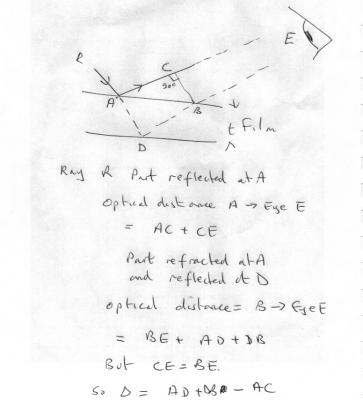 R
E
C
90°
A
B
t Film
D
Ray R Part reflected at A
Optical distance A → Eye E
= AC + CE
Part refracted at A
and reflected at D
optical distance = B → Eye E
= BE + AD + DB
But CE = BE.
So D = AD + DB - AC